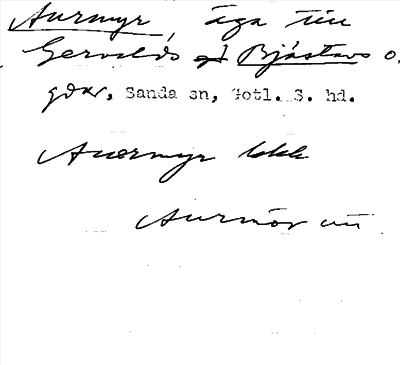 Aurmyr, äga till
Gervalds och Bjästavs o.
gdar, Sanda sn, Gotl. S. hd.
Auermyr lskk
Aurmör uū